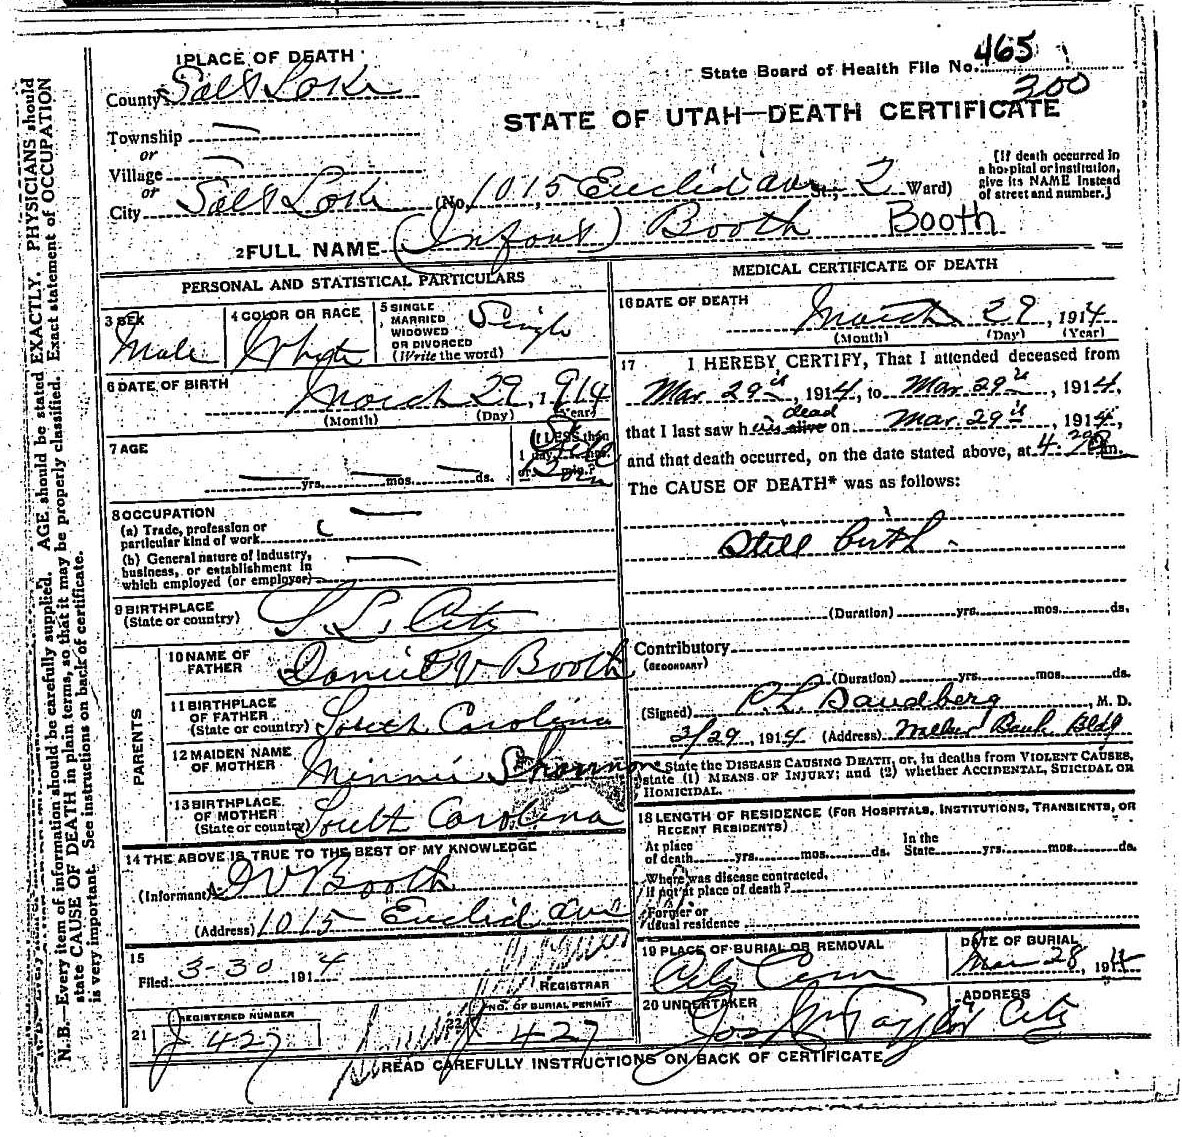 1 PLACE OF DEATH
County Salt Lake
Township —
or
Village —
or
City Salt Lake (No. 1015, Euclid ave St.; 2 Ward)
State Board of Health File No. 465
300
STATE OF UTAH—DEATH CERTIFICATE
[If death occurred in
a hospital or institution,
give its NAME instead
of street and number.]
2 FULL NAME (Infant) Booth Booth
PERSONAL AND STATISTICAL PARTICULARS
3 SEX
Male
4 COLOR OR RACE
White
5 SINGLE
MARRIED
WIDOWED
OR DIVORCED
(Write the word)
Single
6 DATE OF BIRTH
March 29, 1914
(Month) (Day) (Year)
7 AGE
— yrs. — mos. — ds.
If LESS than
1 day, hrs.
or min.?
Still
Born
8 OCCUPATION
(a) Trade, profession or
particular kind of work
(b) General nature of industry,
business, or establishment in
which employed (or employer)
9 BIRTHPLACE
(State or country) S. L. City
PARENTS
10 NAME OF
FATHER Daniel V Booth
11 BIRTHPLACE
OF FATHER
(State or country) South Carolina
12 MAIDEN NAME
OF MOTHER Minnie
13 BIRTHPLACE
OF MOTHER
(State or country) South Carolina
14 THE ABOVE IS TRUE TO THE BEST OF MY KNOWLEDGE
(Informant) D V Booth
(Address) 1015 Euclid ave
15
Filed 3-30 1914
REGISTRAR
21 REGISTERED NUMBER
J 427
22 NO. OF BURIAL PERMIT
J 427
MEDICAL CERTIFICATE OF DEATH
16 DATE OF DEATH
March 29, 1914
(Month) (Day) (Year)
17 I HEREBY CERTIFY, That I attended deceased from
Mar. 29, 1914, to Mar. 29, 1914,
dead
that I last saw him alive on Mar. 29, 1914,
and that death occurred, on the date stated above, at 4 m.
The CAUSE OF DEATH* was as follows:
Still birth.
(Duration) yrs. mos. ds.
Contributory
(SECONDARY)
(Duration) yrs. mos. ds.
(Signed) Sandberg M. D.
3/29, 1914 (Address) Walker Bank Bldg
State the DISEASE CAUSING DEATH, or, in deaths from VIOLENT CAUSES,
state (1) MEANS OF INJURY; and (2) whether ACCIDENTAL, SUICIDAL OR
HOMICIDAL.
18 LENGTH OF RESIDENCE (FOR HOSPITALS, INSTITUTIONS, TRANSIENTS, OR
RECENT RESIDENTS)
At place
of death yrs. mos. ds. In the
State yrs. mos. ds.
Where was disease contracted,
if not at place of death?
Former or
usual residence
19 PLACE OF BURIAL OR REMOVAL
City Cem
DATE OF BURIAL
Mar 28, 1914
20 UNDERTAKER
Jos Wm Taylor
ADDRESS
City
READ CAREFULLY INSTRUCTIONS ON BACK OF CERTIFICATE
N. B.—Every item of information should be carefully supplied. AGE should be stated EXACTLY. PHYSICIANS should
state CAUSE OF DEATH in plain terms, so that it may be properly classified. Exact statement of OCCUPATION
is very important. See instructions on back of certificate.